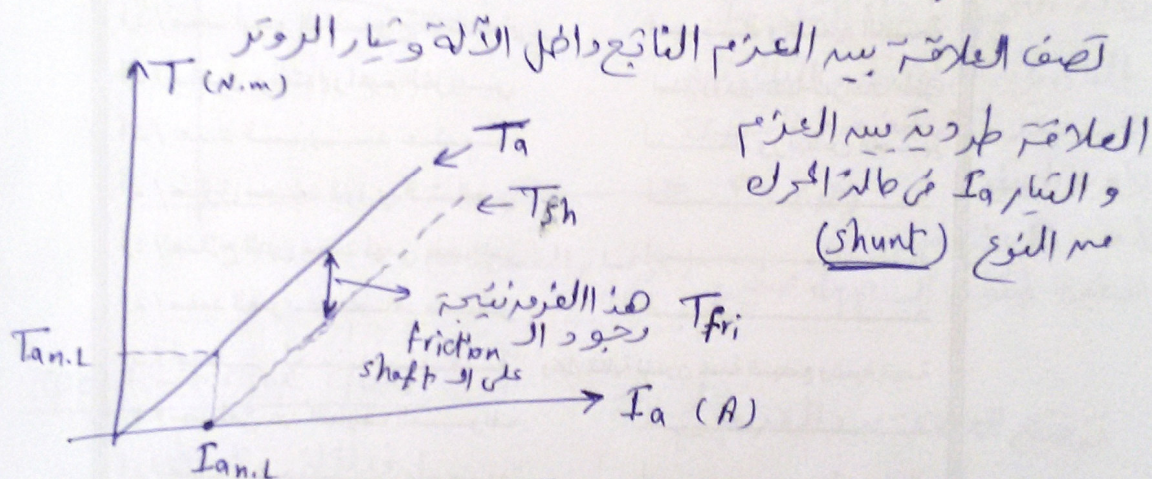 تصف العلاقة بين العزم الناتج داخل الآلة وتيار الروتر
T (N.m)
العلاقة طردية بين العزم
و التيار Ia في حالة المحرك
من النوع (shunt)
Ta
Tsh
هذا الفرق نتيجة
وجود الـ friction
على الـ shaft
Tfri
Tan.L
Ia (A)
Ian.L